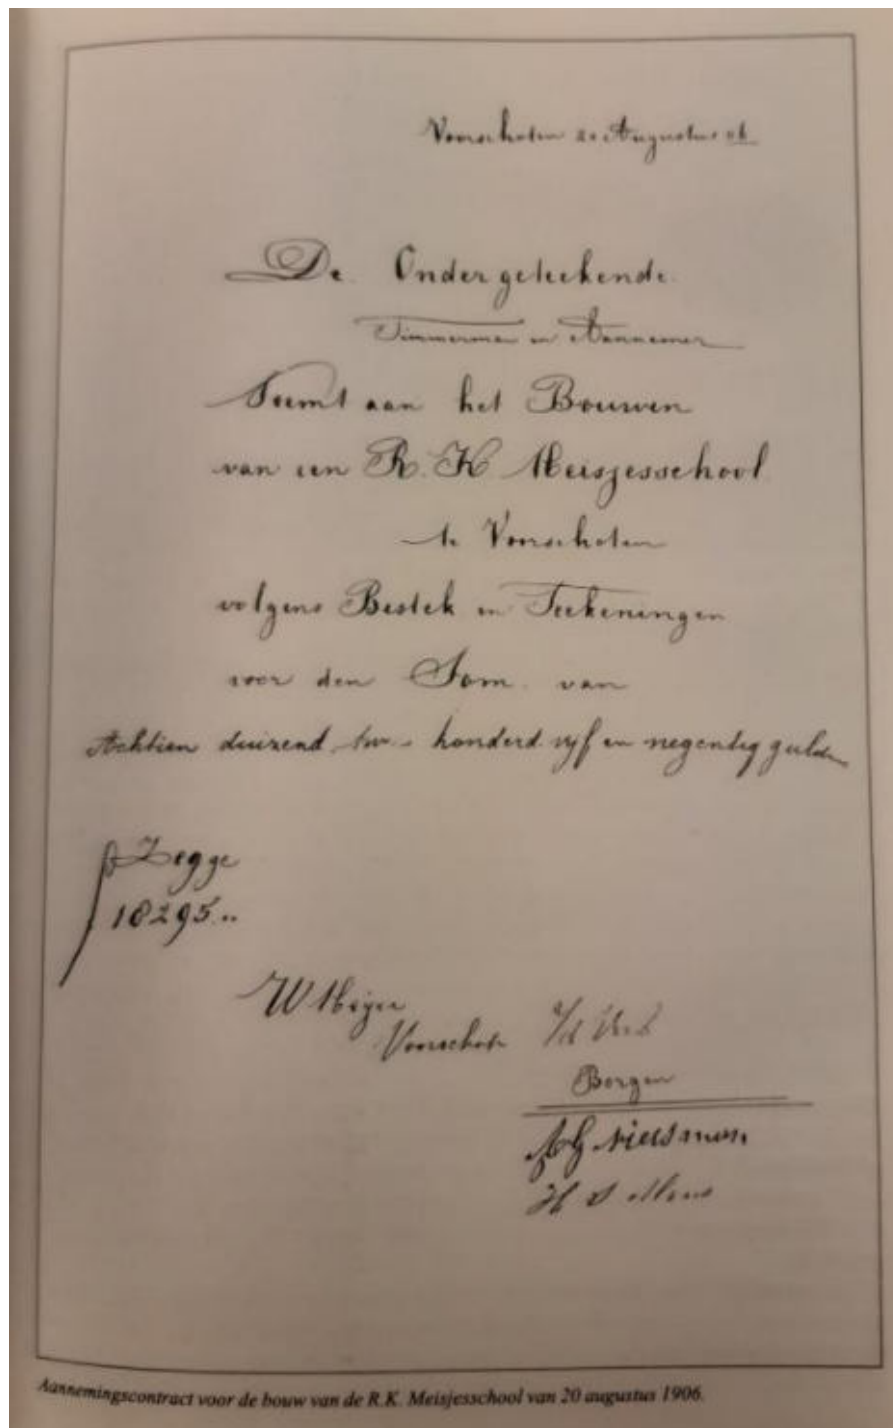 Voorschoten 20 Augustus 06
De Ondergeteekende
Timmerman en Aannemer
Neemt aan het Bouwen
van een R. K Meisjesschool
te Voorschoten
volgens Bestek en Teekeningen
voor den Som van
Achtien duizend twee honderd vijf en negentig gulden
Zegge
18295..
W Meijer
Voorschoten
Borgen
Aannemingscontract voor de bouw van de R.K. Meisjesschool van 20 augustus 1906.